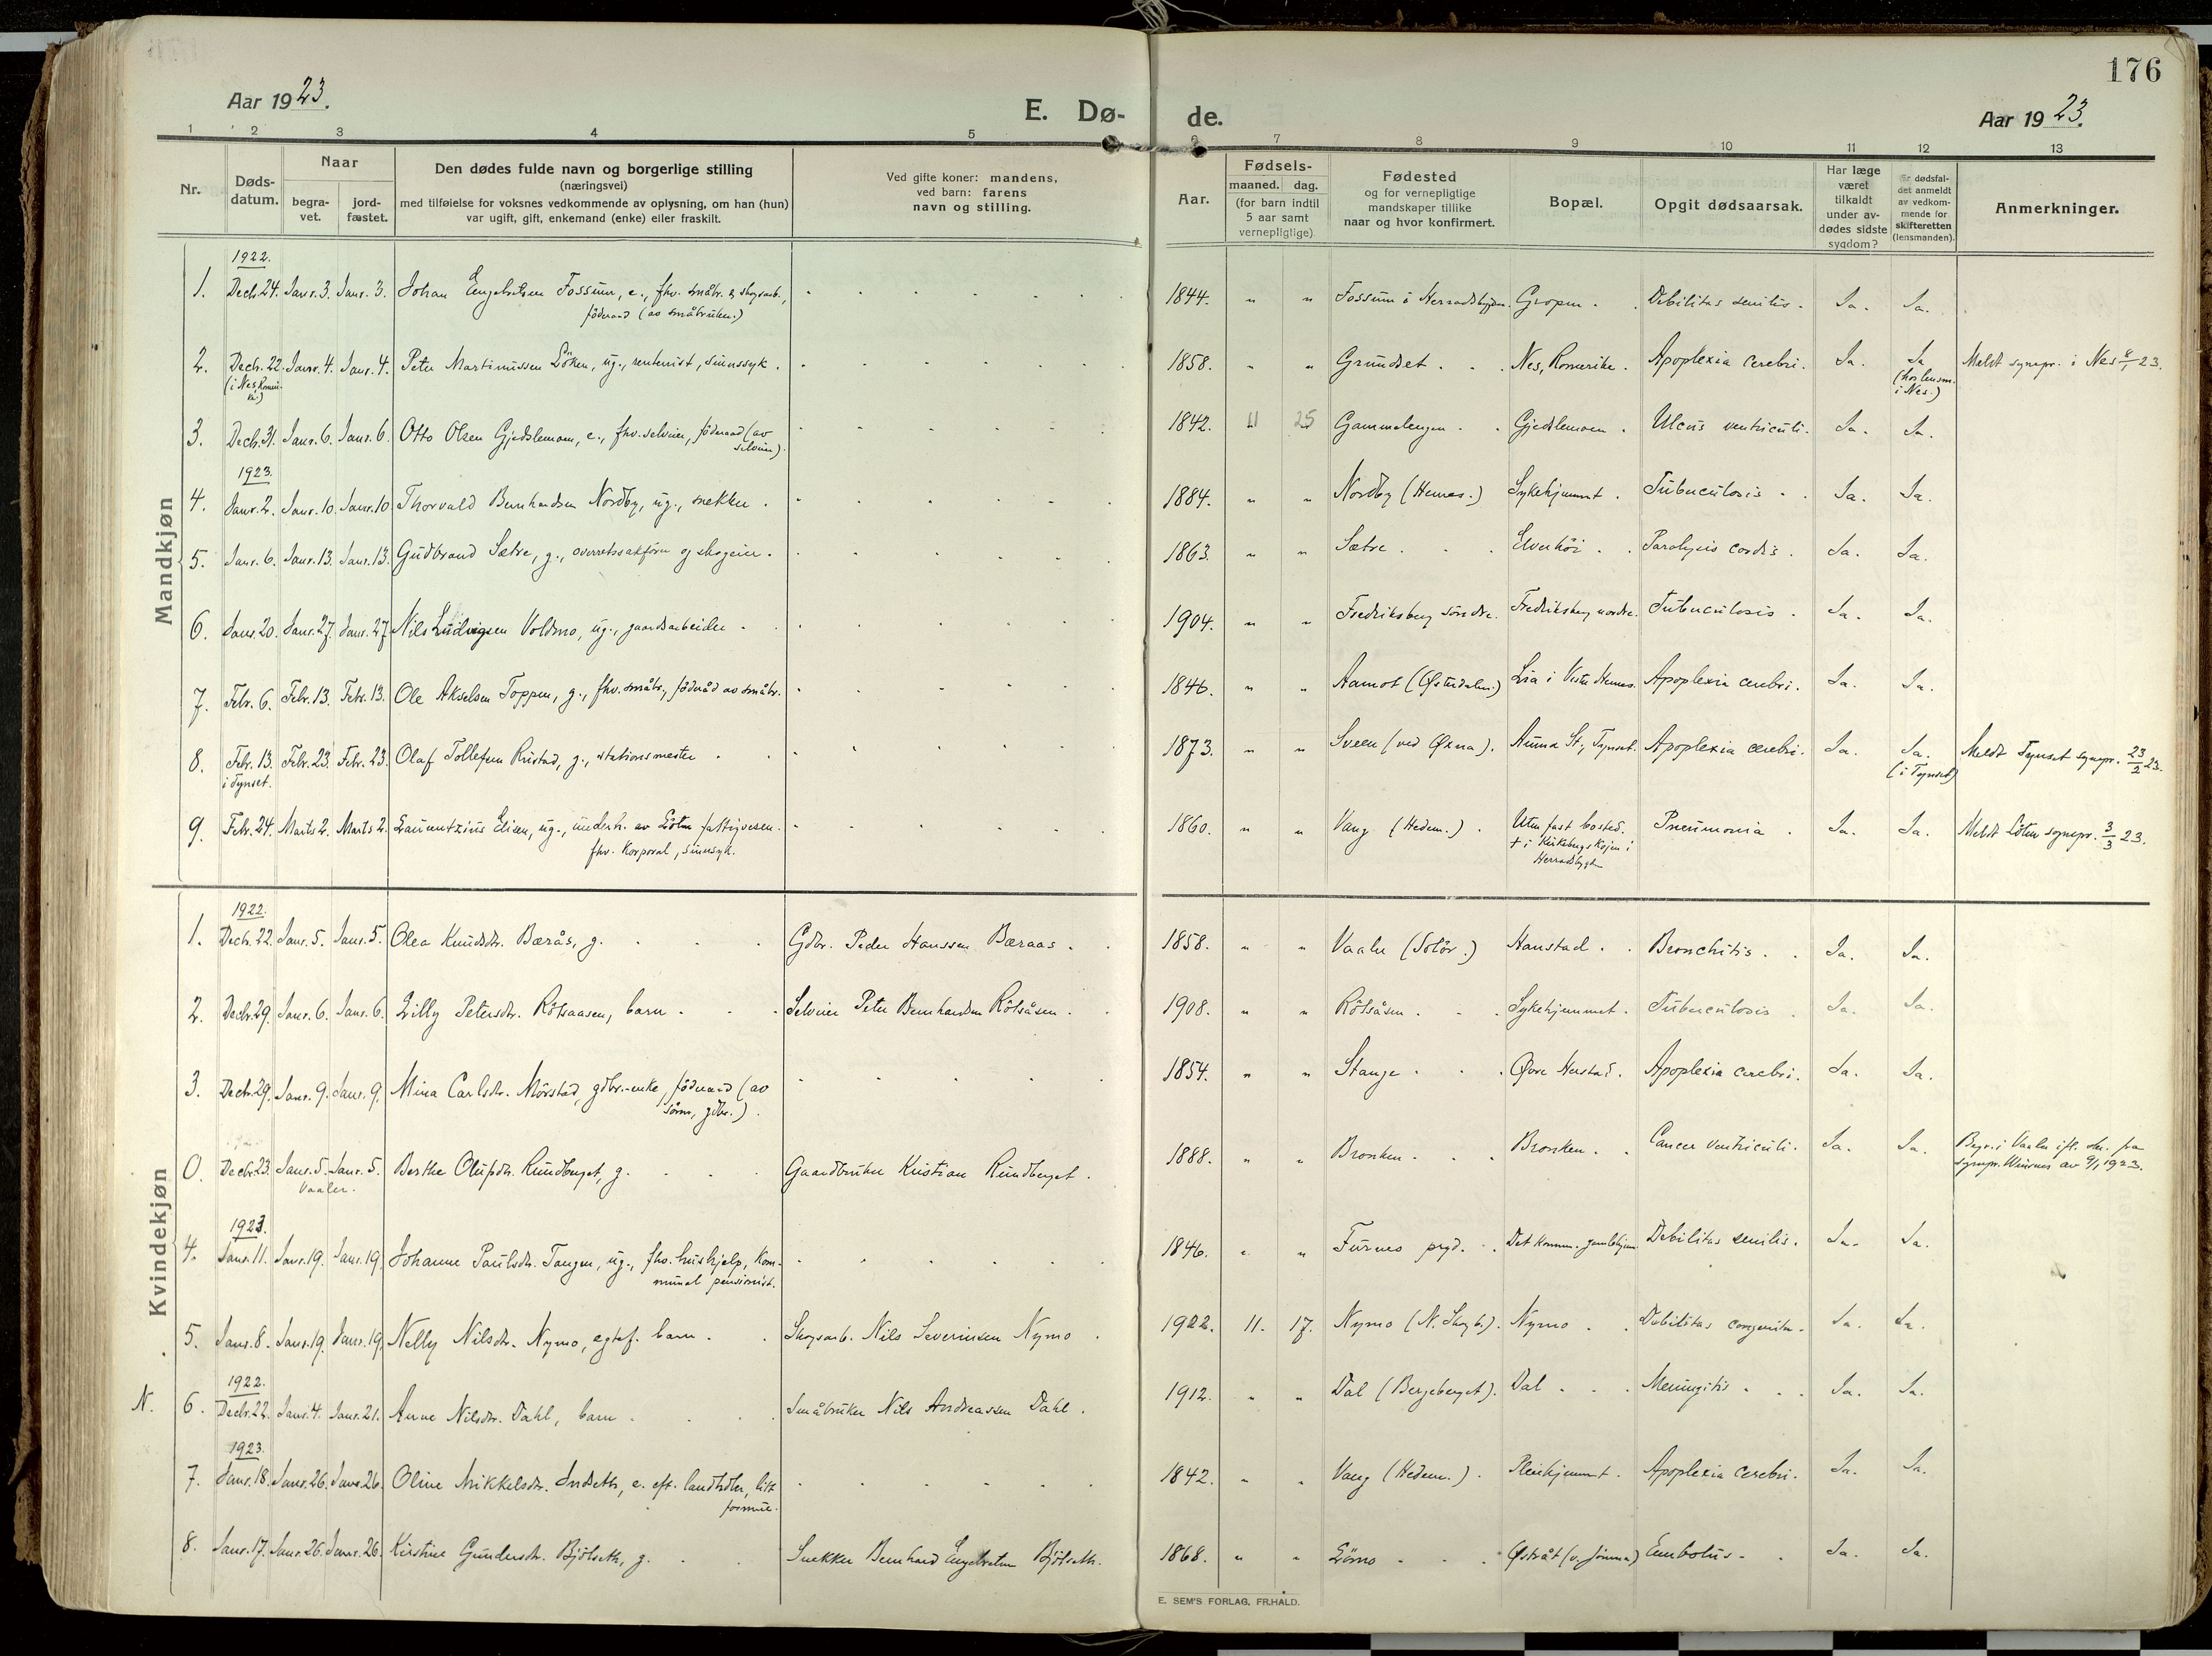 176
Aar 1923.
E. Dø-
de.
Aar 1923.
1 2 3 4 5 6 7 8 9 10 11 12 13
Nr.
Døds-
datum.
Naar
begra-
vet.
jord-
fæstet.
Den dødes fulde navn og borgerlige stilling
(næringsvei)
med tilføielse for voksnes vedkommende av oplysning, om han (hun)
var ugift, gift, enkemand (enke) eller fraskilt.
Ved gifte koner: mandens,
ved barn: farens
navn og stilling.
Aar.
Fødsels-
maaned. dag.
(for barn indtil
5 aar samt
vernepligtige)
Fødested
og for vernepligtige
mandskaper tillike
naar og hvor konfirmert.
Bopæl.
Opgit dødsaarsak.
Har læge
været
tilkaldt
under av-
dødes sidste
sygdom?
Er dødsfal-
det anmeldt
av vedkom-
mende for
skifteretten
(lensmanden).
Anmerkninger.
Mandkjøn
1922.
1. Decb. 24. Janr. 3. Janr. 3. Johan Engebretsen Fossum, e., fhv. småbr. & skogsarb., 1844. " " Fossum i Herradsbygden. Gropen. Debilitas senilis. Ja. Ja.
föderaad (av småbruken.)
2. Decb. 22. Janr. 4. Janr. 4. Peter Martinussen Löken, ug., rentenist, sinnssyk. 1858. " " Grundset. Nes, Romerike. Apoplexia cerebri. Ja. Ja Meldt sognepr. i Nes 23.
(i Nes, Romerike.) (hos lensm. i Nes.)
3. Decb. 31. Janr. 6. Janr. 6. Otto Olsen Gjedslemoen, e., fhv. selveier, föderaad (av 1842. 11 25 Gammelengen. Gjedslemoen. Ulcus ventriculi. Ja. Ja.
selveier).
1923.
4. Janr. 2. Janr. 10. Janr. 10 Thorvald Bernhardsen Nordby, ug., snekker. 1884. " " Nordby (Hernes.) Sykehjemmet. Tuberculosis. Ja. Ja.
5. Janr. 6. Janr. 13. Janr. 13. Gudbrand Sætre, g., overretssakförer og skogeier. 1863. " " Sætre. Elverhöi. Paralysis cordis. Ja. Ja.
6. Janr. 20. Janr. 27. Janr. 27 Nils Ludvigsen Voldmo, ug., gaardsarbeider. 1904. " " Fredriksberg söndre. Fredriksberg nordre. Tuberculosis. Ja. Ja.
7. Febr. 6. Febr. 13. Febr. 13. Ole Akselsen Toppen, g., fhv. småbr., föderåd av småbr. 1846. " " Aamot (Østerdalen.) Lia i Vestre Hernes. Apoplexia cerebri. Ja. Ja.
8. Febr. 13. Febr. 23. Febr. 23. Olaf Tollefsen Rustad, g., stationsmester. 1873. " " Sveen (ved Øxna). Auma St., Tynset. Apoplexia cerebri. Ja. Ja. Meldt Tynset sognepr. 23/2 23.
i Tynset. (i Tynset)
9. Febr. 24. Marts 2. Marts 2. Laurentzius Elisen, ug., underh. av Löten fattigvesen. 1860. " " Vang (Hedem.). Uten fast bosted. Pneumonia. Ja. Ja. Meldt Löten sognepr. 3/3 23.
fhv. korporal, sinnsyk. † i Kirkebergskojen i
Herradsbygden
Kvindekjøn
1922.
1. Decb. 22. Janr. 5. Janr. 5. Olea Knudsdtr. Bærås, g. Gdbr. Peder Hanssen Bæraas. 1858. " " Vaaler (Solör.) Hanstad. Bronchitis. Ja. Ja.
2. Decb. 29. Janr. 6. Janr. 6. Lilly Petersdtr. Rötsaasen, barn. Selveier Peter Bernhardsen Rötsåsen. 1908. " " Rötsåsen. Sykehjemmet. Tuberculosis. Ja. Ja.
3. Decb. 29. Janr. 9. Janr. 9. Mina Carlsdtr. Mörstad, gdbr.-enke, föderaad (av 1854. " " Stange. Øvre Herstad. Apoplexia cerebri. Ja. Ja.
sönn, gdbr.).
0. Decb. 23. Janr. 5. Janr. 5. Berthe Olufsdtr. Rundberget, g. Gaardbruker Kristian Rundberget. 1888. " " Bronken. Bronken. Cancer ventriculi. Ja. Ja. Begr. i Vaaler ifl. skr. fra
Vaaler. sognepr. av 9/1 1923.
1923.
4. Janr. 11. Janr. 19. Janr. 19. Johanne Paulsdtr. Tangen, ug., fhv. hushjelp, kom- 1846. " " Furnes prgd. Det komm. gamlehjem. Debilitas senilis. Ja. Ja.
munal pensionist.
5. Janr. 8. Janr. 19. Janr. 19. Nelly Nilsdtr. Nymo, egtef. barn. Skogsarb. Nils Severinsen Nymo. 1922. 11. 17. Nymo (N. Skogb.). Nymo. Debilitas congenita. Ja. Ja.
1922.
N. 6. Decb. 22. Janr. 4. Janr. 21. Anne Nilsdtr. Dahl, barn. Småbruker Nils Andreassen Dahl. 1912. " " Dal (Bergeberget). Dal. Meningitis. Ja. Ja.
1923.
7. Janr. 18. Janr. 26. Janr. 26. Oline Mikkelsdtr. Indseth, e. eft. landhdler, litt 1842. " " Vang (Hedem.). Pleiehjemmet. Apoplexia cerebri. Ja. Ja.
formue.
8. Janr. 17. Janr. 26. Janr. 26. Kirstine Gundersdtr. Bjölseth, g. Snekker Bernhard Engebretsen Bjölseth. 1868. " " Lömo. Østråt (v. Jömna) Embolus. Ja. Ja.
E. SEM'S FORLAG, FR.HALD.